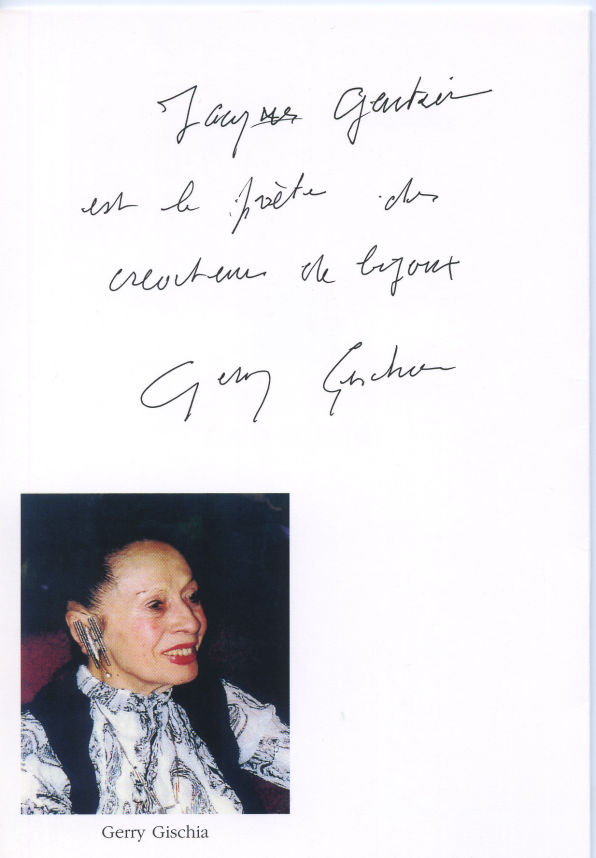 Jacques Gautier
est le poète des
créateurs de bijoux
Gerry Gischia
Gerry Gischia